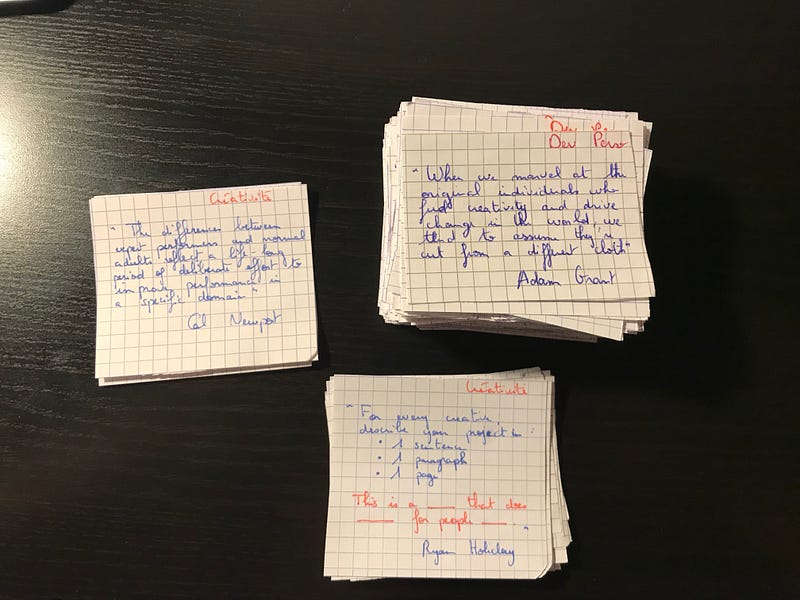 Créativité
" The difference between
expert performers and normal
adults reflect a life-long
period of deliberate effort to
improve performance in
a specific domain "
Cal Newport
Dev Perso
" When we marvel at the
original individuals who
fuel creativity and drive
change in the world, we
tend to assume they're
cut from a different cloth"
Adam Grant
Créativité
" For every creative,
describe your project in :
• 1 sentence
• 1 paragraph
• 1 page
This is a ___ that does
___ for people ___. "
Ryan Holiday